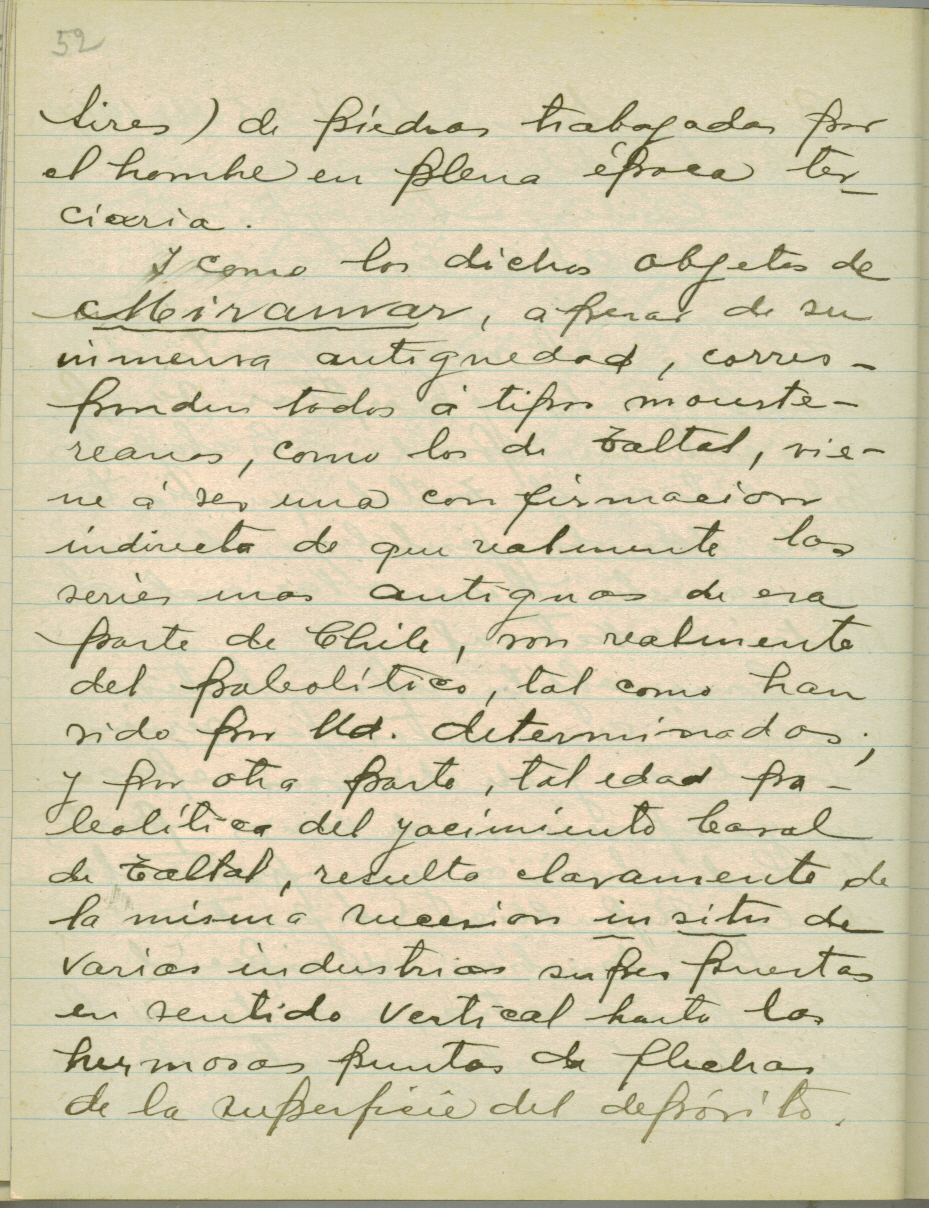 52
Aires) de piedras trabajadas por
el hombre en plena época ter_
ciaria.
Y como los dichos objetos de
Miramar, a pesar de su
inmensa antiguedad, corres-
ponden todos á tipos mouste-
reanos, como los de Taltal, vie-
ne á ser una confirmacion
indirecta de que realmente las
series mas antiguas de esa
parte de Chile, son realmente
del paleolítico, tal como han
sido por Ud. determinadas;
y por otra parte, tal edad pa-
leolítica del yacimiento basal
de Taltal, resulta claramente de
la misma sucesion in situ de
varias industrias superpuestas
en sentido vertical hasta las
hermosas puntas de flechas
de la superficie del depósito.